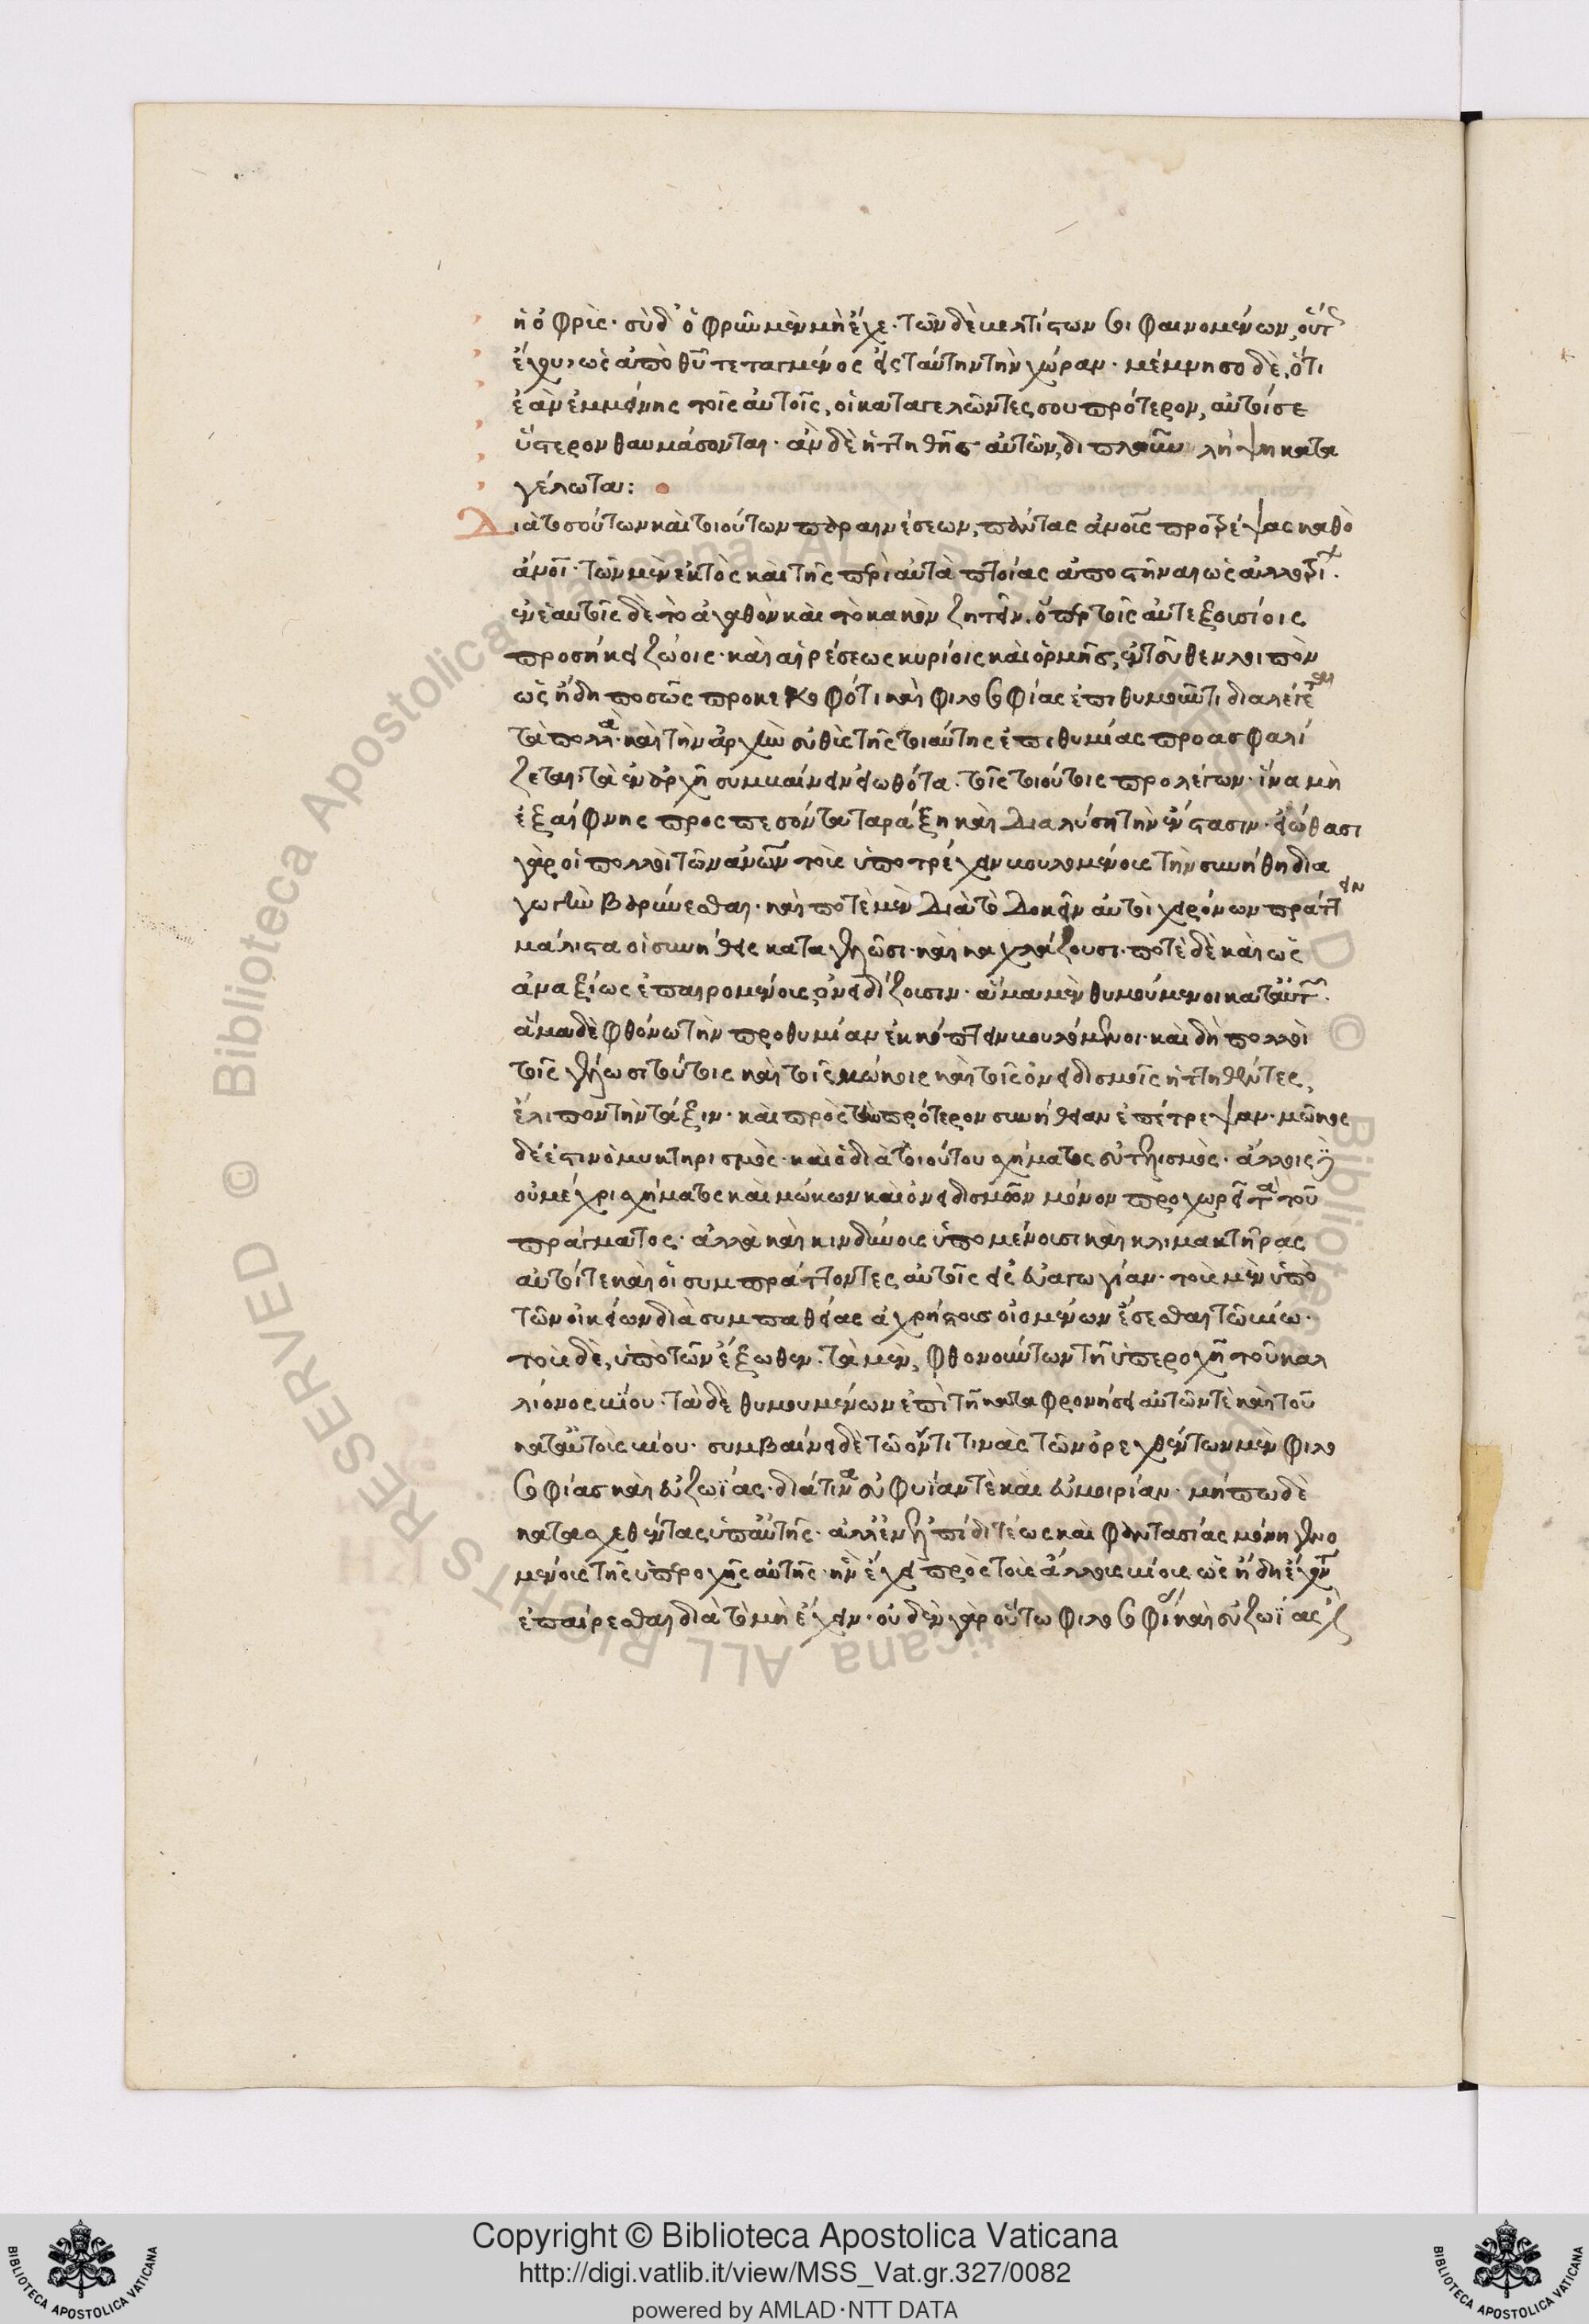 ἡ ὀφρύς· σὺ δ' ὀφρῦν μὲν μὴ ἔχε· τῶν δὲ βελτίστων σοι φαινομένων, οὕτ
ἔχου, ὡς ἀπὸ θυ τεταγμένος εἰς ταύτην τὴν χώραν· μέμνησο δὲ, ὅτι
ἐὰν ἐμμείνης τοῖς αὐτοῖς, οἱ καταγελῶντες σου πρότερον, αὐτοί σε
ὕστερον θαυμάσονται· ἂν δὲ ἡττηθῆς αὐτῶν, διπλοῦν λήψη κατα
γέλωτα:
Διὰ τοσούτων καὶ τοιούτων παραινέσεων, πάντας ἀνοις προτρέψας καθὸ
ἄνοι· τῶν μὲν ἐκτὸς καὶ τῆς περὶ αὐτὰ πτοίας ἀποστῆναι ὡς ἀλλοτρι·
ἐν ἑαυτοῖς δὲ τὸ ἀγαθὸν καὶ τὸ κακὸν ζητεῖν. ὅπερ τοῖς αὐτεξουσίοις
προσήκει ζώοις· καὶ αἱρέσεως κυρίοις καὶ ὁρμῆς, ἐντεῦθεν λοιπὸν
ὡς ἤδη ποσῶς προκεκοφότι καὶ φιλοσοφίας ἐπιθυμοῦντι διαλέγεται
τὰ πολλὰ· καὶ τὴν ἀρχὴν εὐθὺς τῆς τοιαύτης ἐπιθυμίας προασφαλί
ζεται· τὰ ἐν ἀρχῆ συμβαίνειν εἰωθότα· τοῖς τοιούτοις προλέγων· ἵνα μὴ
ἐξαίφνης προσπεσόντα ταράξη καὶ διαλύση τὴν ἔνστασιν· εἰώθασι
γὰρ οἱ πολλοὶ τῶν ἀνων τοὺς ὑποτρέχειν βουλομένους τὴν συνήθη δια
γωγὴν βαρύνεσθαι· καὶ ποτὲ μὲν διὰ τὸ δοκεῖν αὐτοὶ χειρόνων πράττειν
μάλιστα οἱ συνήθεις καταγελῶσι· καὶ καχλάζουσι· ποτὲ δὲ καὶ ὡς
ἀναξίως ἐπαιρομένοις ὀνειδίζουσιν· ἅμα μὲν θυμούμενοι κατ' αὐτ·
ἅμα δὲ φθόνω τὴν προθυμίαν ἐκκόπτειν βουλόμενοι· καὶ δὴ πολλοὶ
τοῖς γέλωσι τούτοις καὶ τοῖς μώκοις καὶ τοῖς ὀνειδισμοῖς ἡττηθέντες,
ἔλιπον τὴν τάξιν· καὶ πρὸς τὴν πρότερον συνήθειαν ἐπέτρεψαν· μῶκος
δέ ἐστιν ὁ μυκτηρισμὸς· καὶ ὁ διὰ τοιούτου σχήματος εὐτελισμὸς· ἄλλοις
οὐ μέχρι σχήματος καὶ μώκων καὶ ὀνειδισμῶν μόνον προχωρεῖ τὰ τοῦ
πράγματος· ἀλλὰ καὶ κινδύνους ὑπομένουσι καὶ κλιμακτῆρας
αὐτοί τε καὶ οἱ συμπράττοντες αὐτοῖς εἰς εὐαγωγίαν· τοὺς μὲν ὑπὸ
τῶν οἰκείων διὰ συμπαθείας ἀχρήστους οἰομένων ἔσεσθαι τῶ βίω·
τοὺς δὲ, ὑπὸ τῶν ἔξωθεν· τὰ μὲν, φθονούντων τῆ ὑπεροχῆ τοῦ καλ
λίονος βίου· τὰ δὲ θυμουμένων ἐπὶ τῆ καταφρονήσει αὐτῶν τὲ καὶ τοῦ
κατ' αὐτοὺς βίου· συμβαίνει δὲ τῶ ὄντι τινὰς τῶν ὀρεχθέντων μὲν φιλο
σοφίας καὶ εὐζωΐας· διά τινα εὐφυΐαν τὲ καὶ εὐμοιρίαν· μήπω δὲ
κατασχεθέντας ὑπ' αὐτῆς· ἀλλ' ἐν ἐλπίδι τέως καὶ φαντασίας μόνη γενο
μένους τῆς ὑπεροχῆς αὐτῆς· ἣν ἔχει πρὸς τοὺς ἄλλους βίους ὡς ἤδη ἔχον
ἐπαίρεσθαι διὰ τὸ μὴ ἔχειν· οὐδὲν γὰρ οὕτω φιλοσοφί καὶ εὐζωΐας